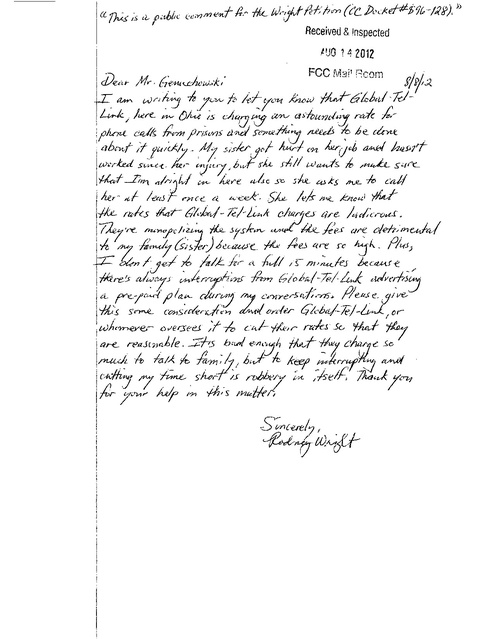 "This is a public comment for the Wright Petition (CC Docket #96-128)."
Received & Inspected
AUG 14 2012
FCC Mail Room
8/8/12
Dear Mr. Genachowski
I am writing to you to let you know that Global-Tel-
Link, here in Ohio is charging an astounding rate for
phone calls from prisons and something needs to be done
about it quickly. My sister got hurt on her job and hasn't
worked since her injury, but she still wants to make sure
that I'm alright in here also so she asks me to call
her at least once a week. She lets me know that
the rates that Global-Tel-Link charges are ludicrous.
They're monopolizing the system and the fees are detrimental
to my family (sister) because the fees are so high. Plus,
I don't get to talk for a full 15 minutes because
there's always interruptions from Global-Tel-Link advertising
a pre-paid plan during my conversations. Please give
this some consideration and order Global-Tel-Link, or
whomever oversees it to cut their rates so that they
are reasonable. It is bad enough that they charge so
much to talk to family, but to keep interrupting and
cutting my time short is robbery in itself. Thank you
for your help in this matter.
Sincerely,
Rodney Wright